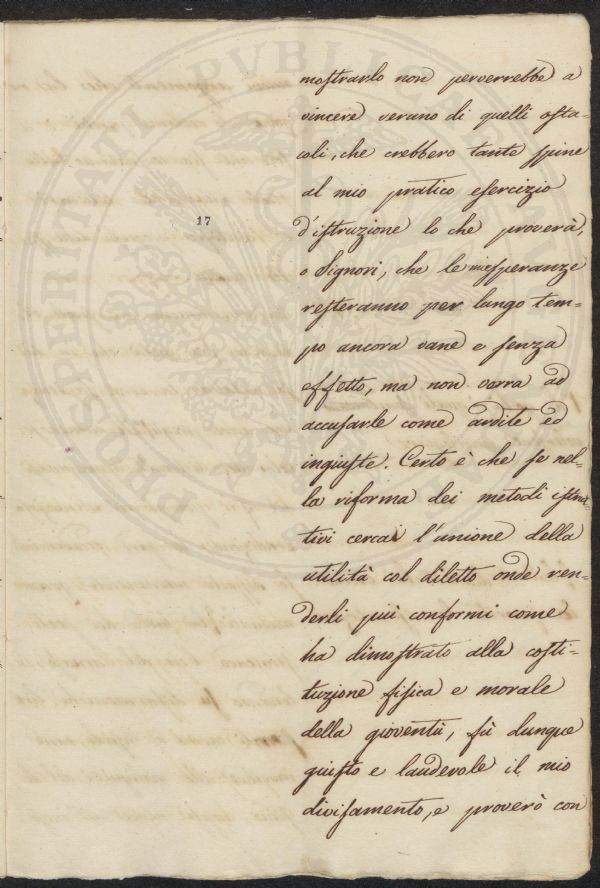 mostrarlo non perverrebbe a
vincere veruno di quelli osta=
coli, che crebbero tante spine
al mio pratico esercizio
17
d'istruzione lo che proverà,
o Signori, che le mie speranze
resteranno per lungo tem=
po ancora vane e senza
effetto, ma non varrà ad
accusarle come ardite ed
ingiuste. Certo è che se nel=
la riforma dei metodi istru=
tivi cercai l'unione della
utilità col diletto onde ren=
derli più conformi come
ha dimostrato alla costi=
tuzione fisica e morale
della gioventù, fù dunque
giusto e lauderole il mio
divisamento, e proverò con
PROSPERITATI PVBLICAE